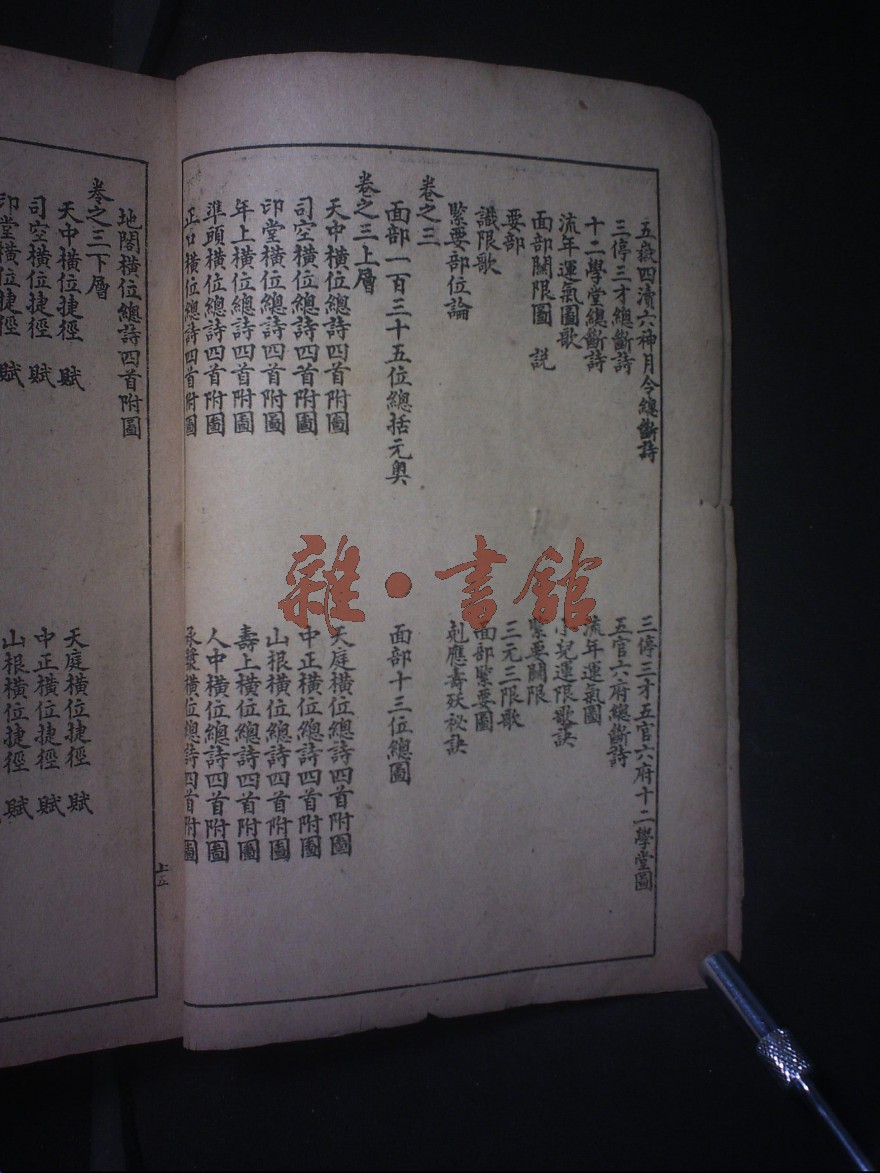 五嶽四瀆六神月令總斷詩
三停三才五官六府十二學堂圖
三停三才總斷詩
五官六府總斷詩
十二學堂總斷詩
流年運氣圖
流年運氣圖歌
小兒運限歌訣
面部關限圖 説
緊要關限
要部
三元三限歌
識限歌
面部緊要圖
緊要部位論
剋應壽殀秘訣
卷之三
面部一百三十五位總括元奧
面部十三位總圖
卷之三上層
天中橫位總詩四首附圖
天庭橫位總詩四首附圖
司空橫位總詩四首附圖
中正橫位總詩四首附圖
印堂橫位總詩四首附圖
山根橫位總詩四首附圖
年上橫位總詩四首附圖
壽上橫位總詩四首附圖
準頭橫位總詩四首附圖
人中橫位總詩四首附圖
正口橫位總詩四首附圖
承漿橫位總詩四首附圖
地閣橫位總詩四首附圖
卷之三下層
天中橫位捷徑 賦
天庭橫位捷徑 賦
司空橫位捷徑 賦
中正橫位捷徑 賦
印堂橫位捷徑 賦
山根橫位捷徑 賦
上五
雜·書館